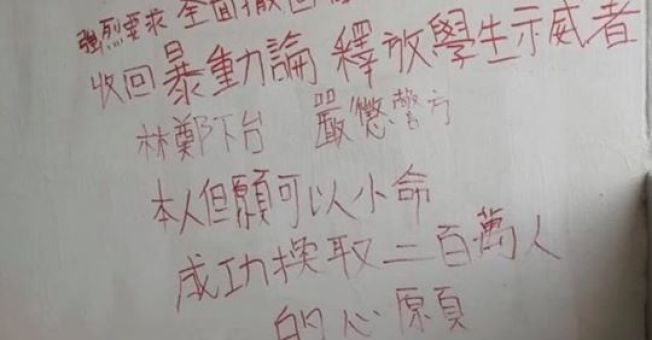 強烈要求 全面撤回
收回暴動論 釋放學生示威者
林鄭下台 嚴懲警方
本人但願可以小命
成功換取二百萬人
的心願